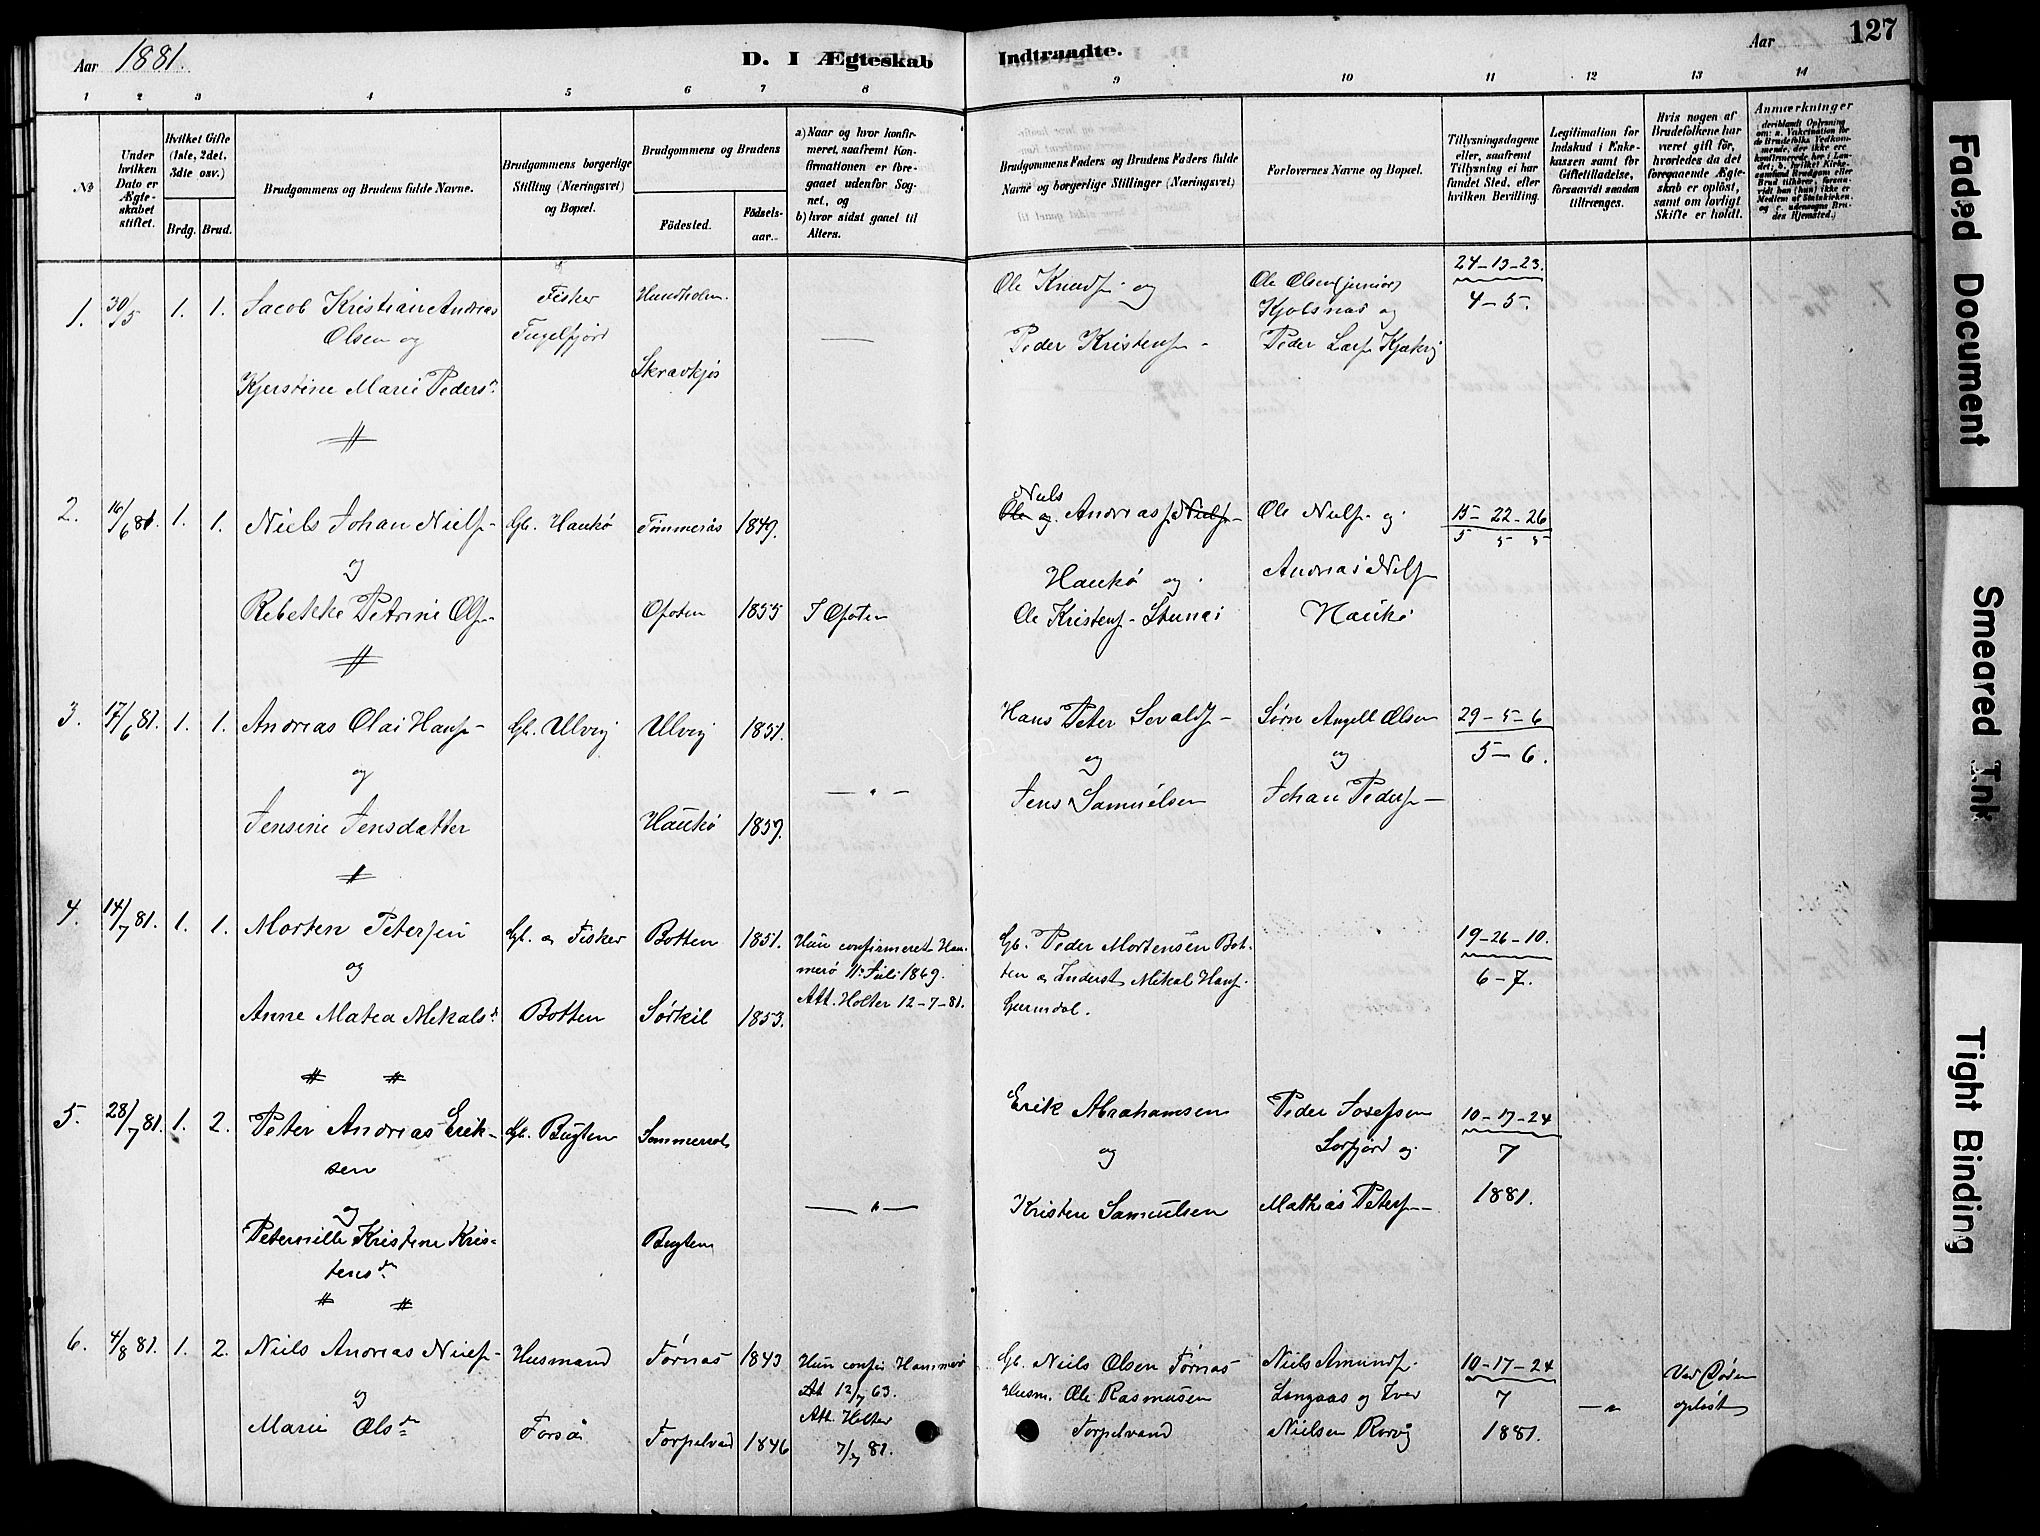 Aar 1881.
D. I Ægteskab
Indtraadte.
Aar
127
1 2 3 4 5 6 7 8 9 10 11 12 13 14
No
Under hvilken Dato er Ægteskabet stiftet.
Hvilket Gifte (1ste, 2det, 3die osv.)
Brdg. Brud.
Brudgommens og Brudens fulde Navne.
Brudgommens borgerlige Stilling (Næringsvei) og Bopæl.
Brudgommens og Brudens
Fødested.
Fødsels-aar.
a) Naar og hvor konfirmeret, saafremt Konfirmationen er foregaaet udenfor Sognet, og
b) hvor sidst gaaet til Alters.
Brudgommens Faders og Brudens Faders fulde Navne og borgerlige Stillinger (Næringsvei)
Forlovernes Navne og Bopæl.
Tillysningsdagene eller, saafremt Tillysning ei har fundet Sted, efter hvilken Bevilling.
Legitimation for Indskud i Enkekassen samt for Giftetilladelse, forsaavidt saadan tiltrænges.
Hvis nogen af Brudefolkene har været gift før, hvorledes da det foregaaende Ægteskab er opløst, samt om lovligt Skifte er holdt.
Anmærkninger
1. 30/5 1. 1. Jacob Kristian Andreas
Olsen og
Kjerstine Marie Peders.
Fisker
Hundholm.
Skravkjos
Ole Knuds. og
Peder Kristens.
Ole Olsen (junior)
og
Peder Lars.
24-13-23.
4-5.
2. 16/6 81. 1. 1. Niels Johan Niels.
og
Rebekke Petrine Ols.
Gb. Haukø
Tømmerås 1849.
Ofoten 1855 I Ofoten
Niels
Ole og. Andreas. Niels.
Haukø og.
Ole Kristens.
Ole Niels. og
Andreas Niels.
Haukø
15-22-26
5 5 5
3. 17/6 81. 1. 1. Andreas Olai Hans.
og
Jensine Jensdatter
Gb. Ulvig
Ulvig 1851.
Haukø 1859.
Hans Peter Sevalds.
og
Jens Samuelsen
Sørn Angell Olsen
og
Johan Peders.
29-5-6
5-6.
4. 14/7 81. 1. 1. Morten Petersen
og
Anne Matea Mikals.
Gb. og Fisker
Botten
Botten 1851.
Sørkil 1853.
Hun confirmeret Hammerø 11 Juli 1869.
Att. Holter 12-7-81.
Gb. Peder Mortensen Botten
og Inderst Mikal Hans.
19-26-10.
6-7.
5. 28/7 81. 1. 2. Peter Andreas Eriksen
og
Peternille Kristine Kristens.
Gb. Bugten
Sommersel
Bugten
Erik Abrahamsen
og
Kristen Samuelsen
Peder Josefsen
Sørfjord og
Mathias Peters.
10-17-24
7
1881.
6. 4/8 81. 1. 2. Niels Andreas Niels.
og
Marie Ols.
Husmand
Forså
Tørnæs 1843
Torpelvand 1846
Hun confir Hammerø
12/7 63.
Att. Holter
7/7 81.
Gb. Niels Olsen Tørnæs
Husm. Ole Rasmusen
Torpelvand
Niels Amunds.
Langaas og Iver
Nielsen Rørvig
10-17-24
7
1881.
Ved Døden
opløst
Faded Document
Smeared Ink
Tight Binding